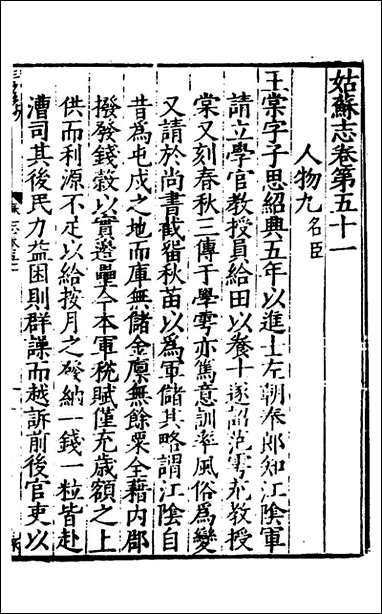 姑蘇志卷第五十一
人物九 名臣
王棠字子思紹興五年以進士左朝奉郎知江陰軍
請立學官教授員給田以養士遂詔范雩充教授
棠又刻春秋三傳于學雩亦篤意訓率風俗爲變
又請於尚書截畱秋苗以爲軍儲其略謂江陰自
昔爲屯戍之地而庫無儲金廪無餘粟全藉内郡
撥發錢榖以實邊壘今本軍税賦僅充歲額之上
供而利源不足以給按月之發納一錢一粒皆赴
漕司其後民力益困則群譟而越訴前後官吏以